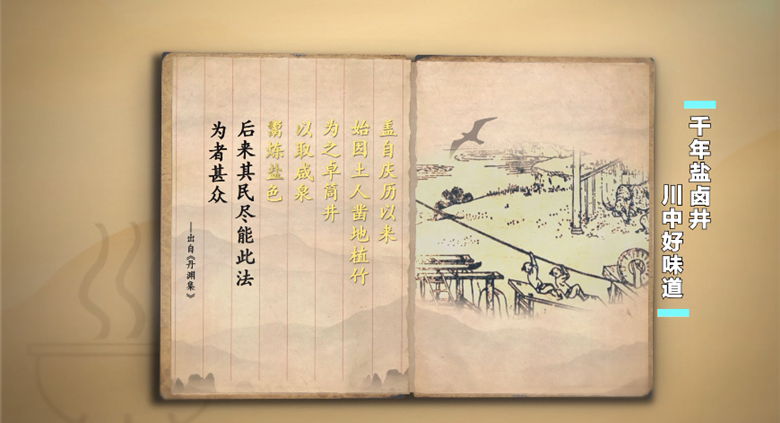 盖自庆历以来
始因土人凿地植竹
为之卓筒井
以取咸泉
鬻炼盐色
后来其民尽能此法
为者甚众
——出自《丹渊集》
千年盐卤井
川中好味道